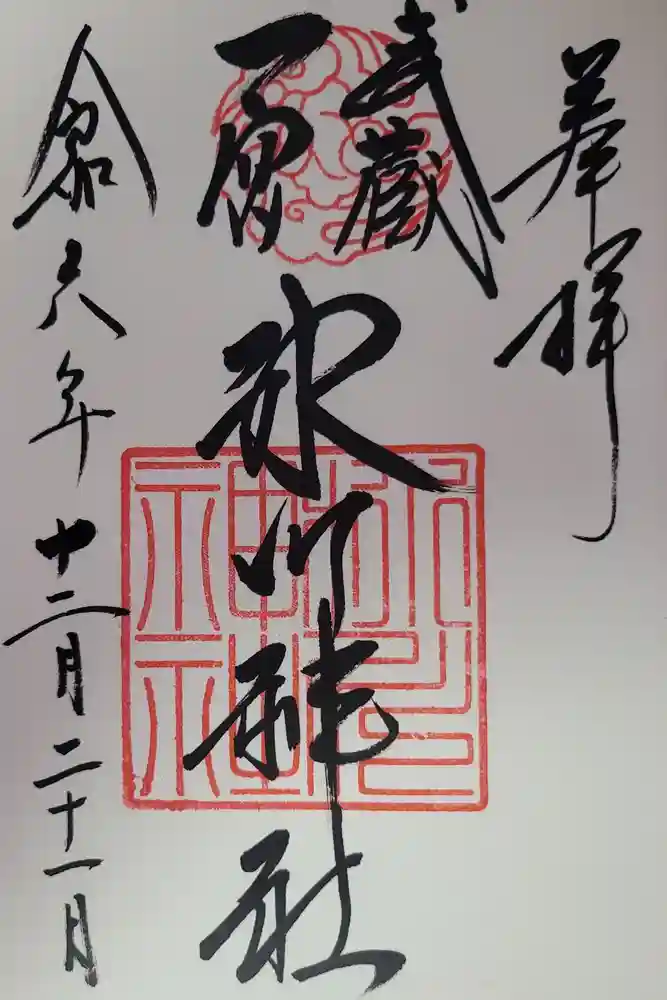 奉拝
武蔵
氷川神社
令和六年十二月二十一日